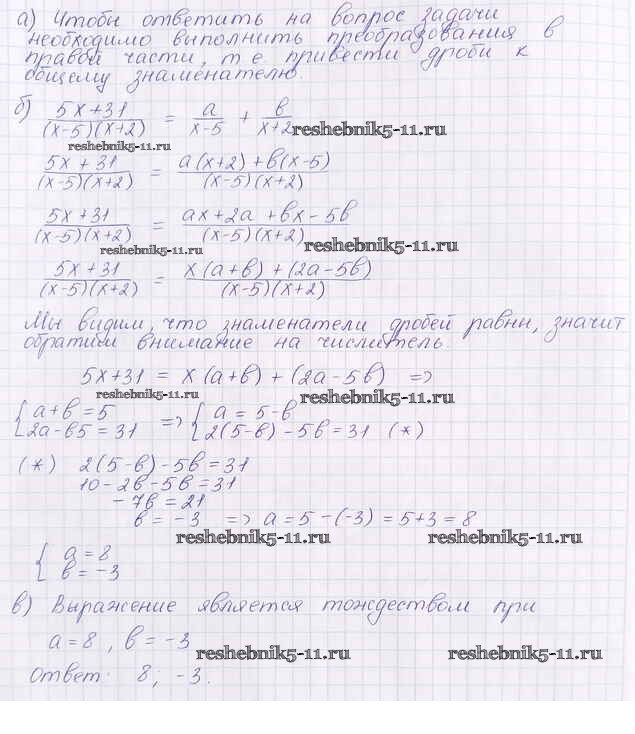 а) Чтобы ответить на вопрос задачи
необходимо выполнить преобразования в
правой части, т е привести дроби к
общему знаменателю.
б) (5x+31)/((x-5)(x+2)) = a/(x-5) + в/(x+2) reshebnik5-11.ru
reshebnik5-11.ru
(5x+31)/((x-5)(x+2)) = (a(x+2)+в(x-5))/((x-5)(x+2))
(5x+31)/((x-5)(x+2)) = (ax+2a+вx-5в)/((x-5)(x+2))
reshebnik5-11.ru reshebnik5-11.ru
(5x+31)/((x-5)(x+2)) = (x(a+в)+(2a-5в))/((x-5)(x+2))
Мы видим, что знаменатели дробей равны, значит
обратим внимание на числитель.
5x+31 = x(a+в)+(2a-5в) =>
reshebnik5-11.ru reshebnik5-11.ru
{ a+в=5 => { a = 5-в
2a-в5=31 2(5-в)-5в=31 (*)
(*) 2(5-в)-5в=31
10-2в-5в=31
-7в=21
в=-3 => a=5-(-3)=5+3=8
reshebnik5-11.ru reshebnik5-11.ru
{ a=8
в=-3
в) Выражение является тождеством при
a=8, в=-3
reshebnik5-11.ru reshebnik5-11.ru
Ответ: 8; -3.